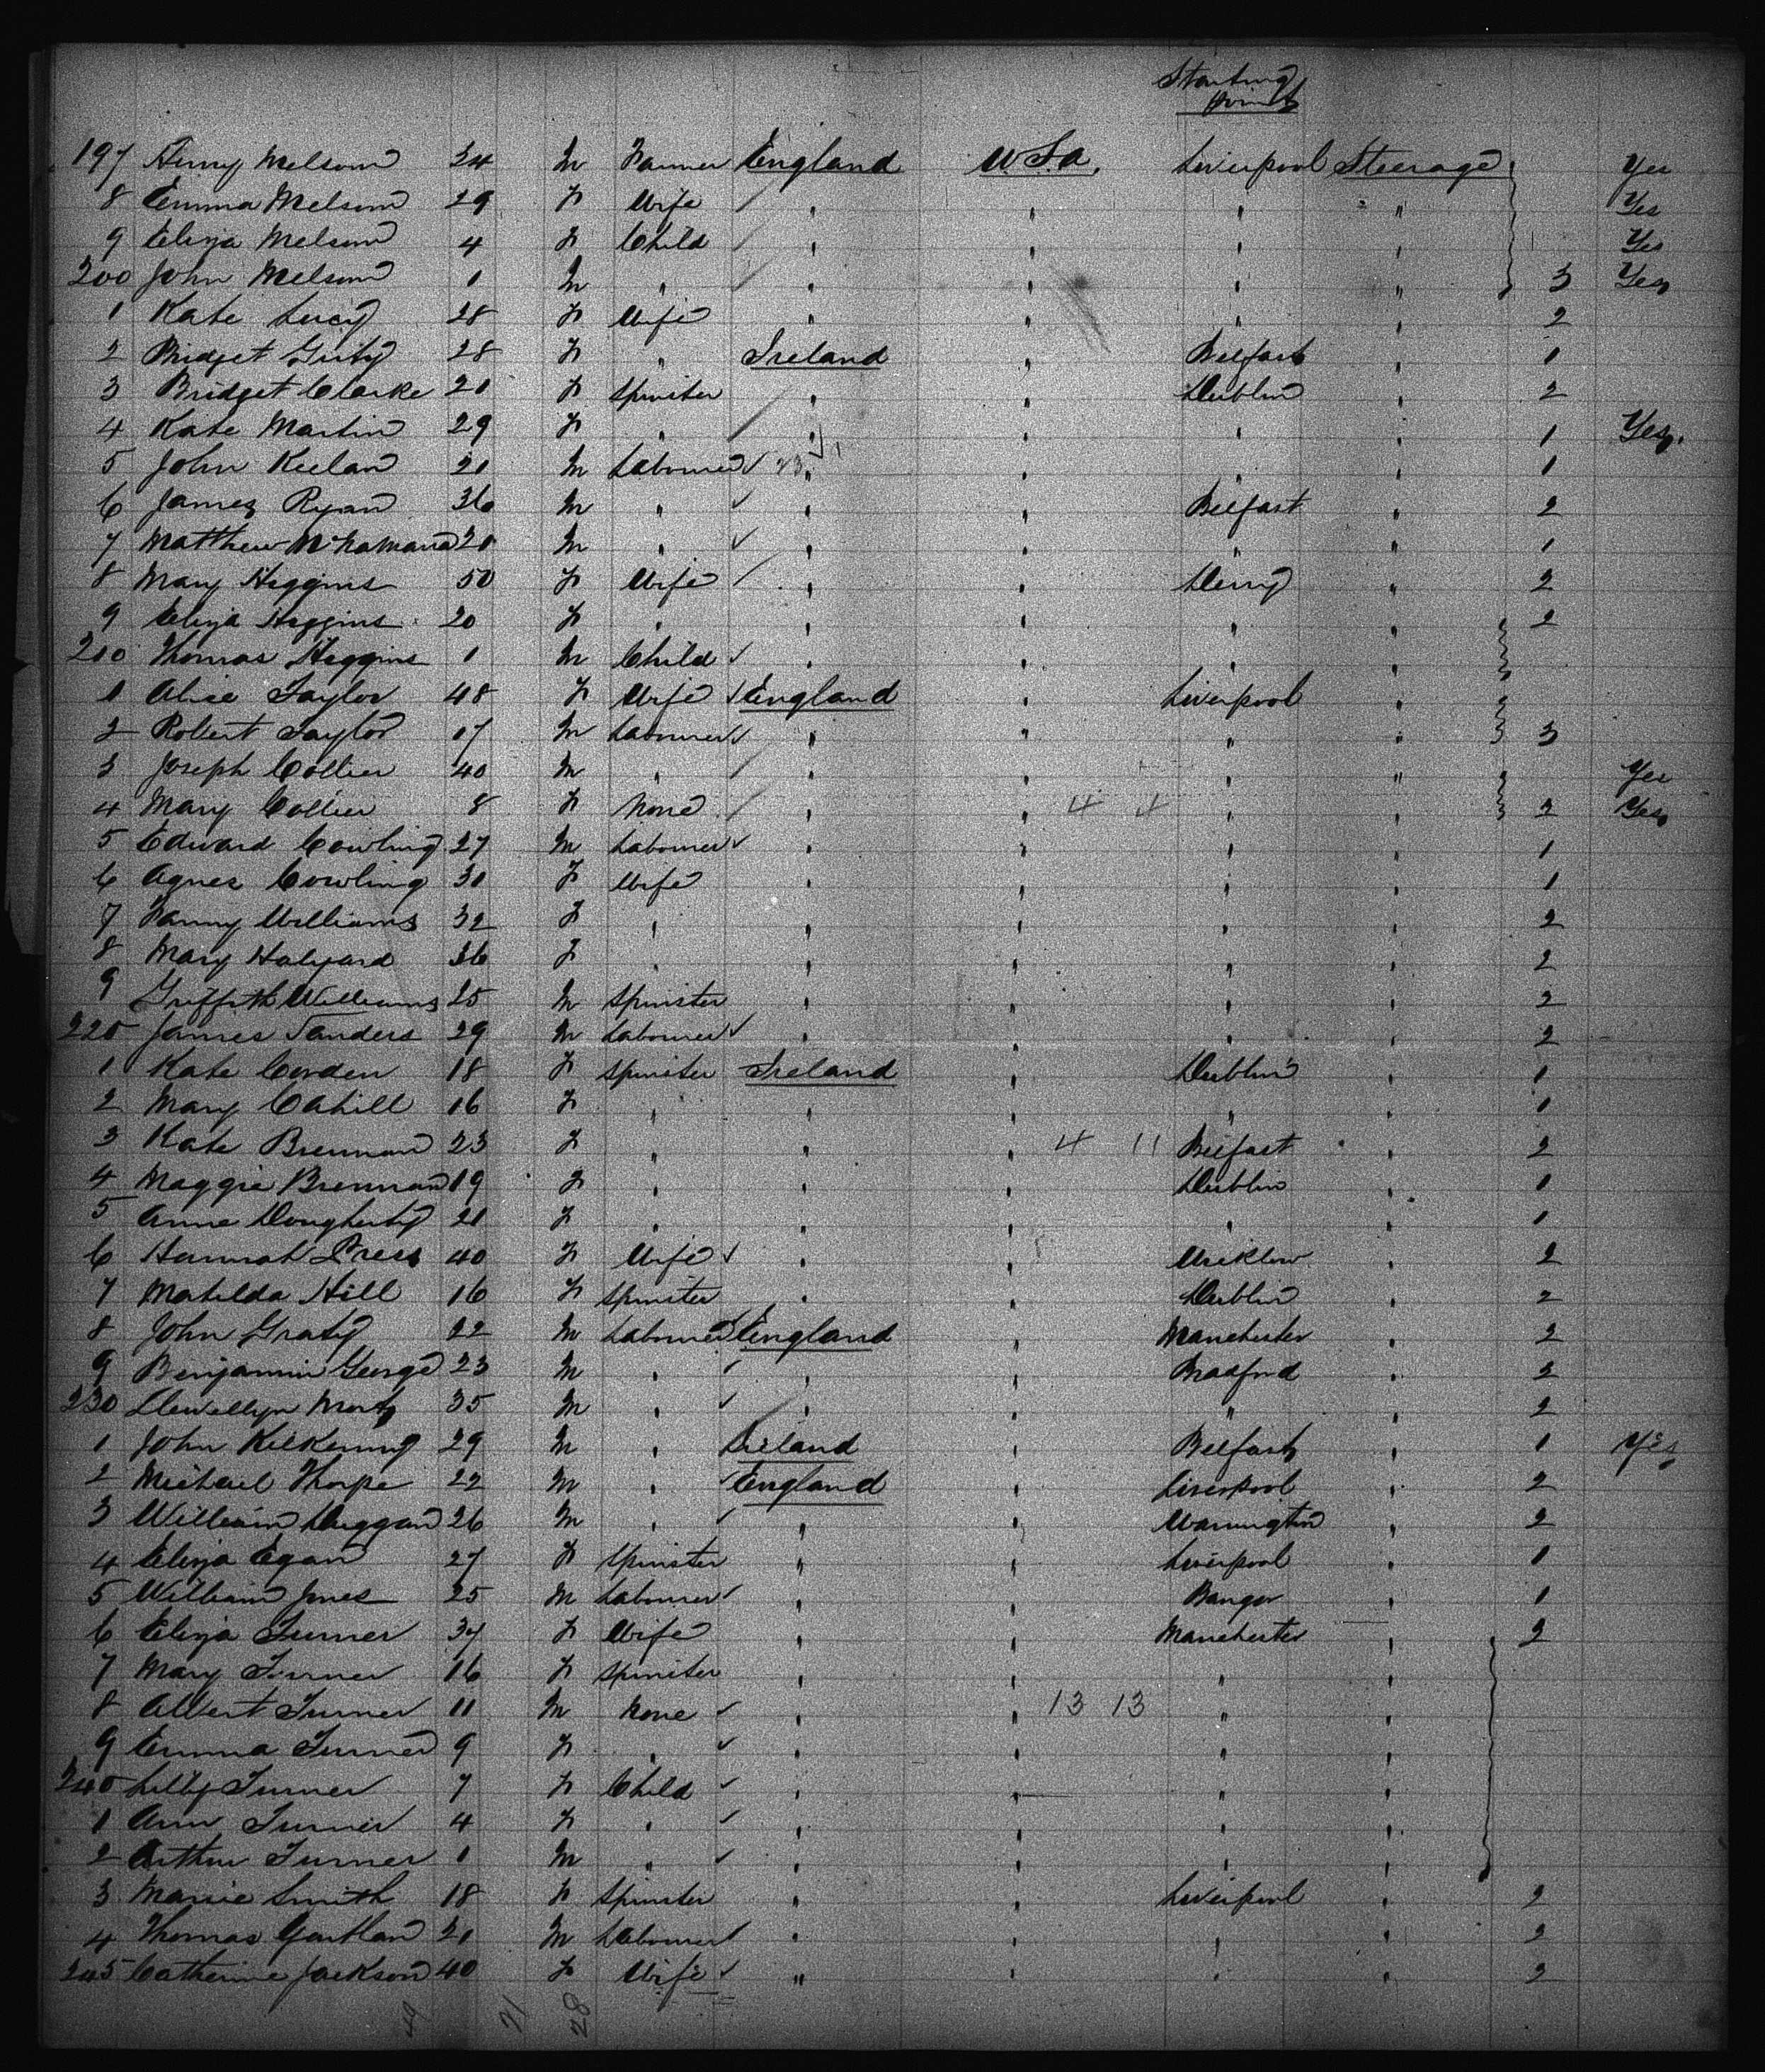 Starting
point
197 Henry Melsom 24 M Farmer England U.S.A. Liverpool Steerage Yes
8 Emma Melsom 29 F Wife " " " " Yes
9 Eliza Melsom 4 F Child " " " " Yes
200 John Melsom 1 M " " " " " 3 Yes
1 Kate Lucy 28 F Wife " " " " 2
2 Bridget 28 F " Ireland " Belfast " 1
3 Bridget Clarke 20 F Spinster " " Dublin " 2
4 Kate Martin 29 F " " " " " 1 Yes.
5 John Keelan 21 M Labourer " " " " 1
6 James Ryan 36 M " " " Belfast " 2
7 Matthew McNamara 20 M " " " " " 1
8 Mary Higgins 50 F Wife " " Derry " 2
9 Eliza Higgins 20 F " " " " " 2
210 Thomas Higgins 1 M Child " " " "
1 Alice Taylor 48 F Wife England " Liverpool "
2 Robert Taylor 17 M Labourer " " " " 3
3 Joseph Collier 40 M " " " " " Yes
4 Mary Collier 8 F None " " 4 4 " " 2 Yes
5 Edward Cowling 27 M Labourer " " " " 1
6 Agnes Cowling 30 F Wife " " " " 1
7 Fanny Williams 32 F " " " " " 2
8 Mary Halyard 36 F " " " " " 2
9 Griffith Williams 25 M Spinster " " " " 2
220 James Sanders 29 M Labourer " " " " 2
1 Kate Corden 18 F Spinster Ireland " Dublin " 1
2 Mary Cahill 16 F " " " " " 1
3 Kate Brennan 23 F " " " 4 11 Belfast " 2
4 Maggie Brennan 19 F " " " Dublin " 1
5 Anne Dougherty 21 F " " " " " 1
6 Hannah Press 40 F Wife " " Wicklow " 2
7 Matilda Hill 16 F Spinster " " Dublin " 2
8 John Graty 22 M Labourer England " Manchester " 2
9 Benjamin George 23 M " " " Bradford " 2
230 Llewellyn 35 M " " " " " 2
1 John Kilkenny 29 M " Ireland " Belfast " 1 Yes
2 Michael Thorpe 22 M " England " Liverpool " 2
3 William Duggan 26 M " " " Warrington " 2
4 Eliza Egan 27 F Spinster " " Liverpool " 1
5 William Jones 25 M Labourer " " Bangor " 1
6 Eliza Turner 37 F Wife " " Manchester " 2
7 Mary Turner 16 F Spinster " " " "
8 Albert Turner 11 M None " " 13 13 " "
9 Emma Turner 9 F " " " " "
240 Lilly Turner 7 F Child " " " "
1 Ann Turner 4 F " " " " "
2 Arthur Turner 1 M " " " " "
3 Marie Smith 18 F Spinster " " Liverpool " 2
4 Thomas Gartlan 21 M Labourer " " " " 2
245 Catherine Jackson 40 F Wife " " " " 2
49 21 28